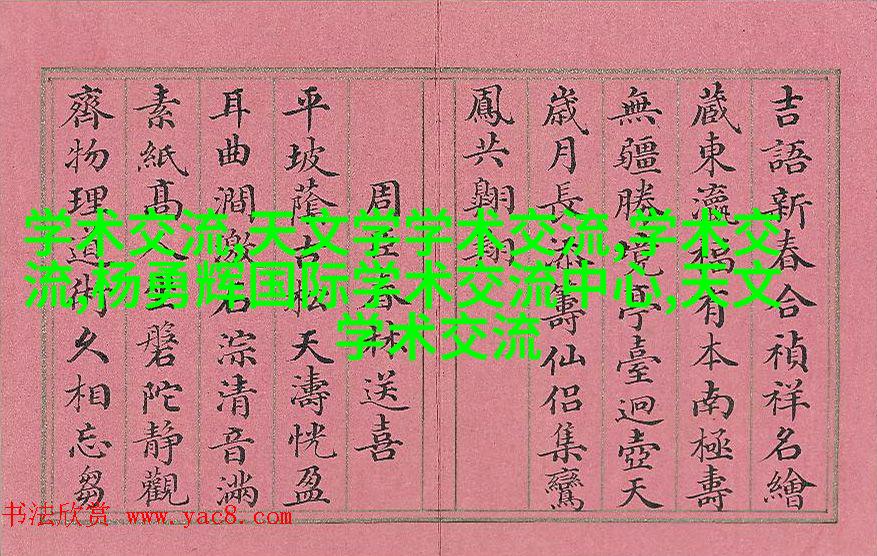 吉語新春合禎祥名繪
藏東瀛福有本南極壽
無疆勝境亭臺迴壺天
歲月長添壽仙侶集鸞
鳳共翱翔
周春林送喜
平坡蔭古松天濤恍盈
耳曲澗激石淙清音滿
素紙高人坐磐陀靜觀
齊物理道術久相忘芻
学术交流,天文学学术交流,学术交
流,杨勇辉国际学术交流中心,天文
学术交流
书法欣赏 www.yac8.com